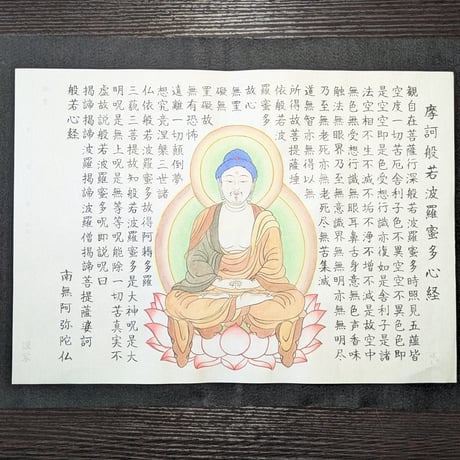 摩訶般若波羅蜜多心経
観自在菩薩行深般若波羅蜜多時照見五蘊皆
空度一切苦厄舎利子色不異空空不異色色即
是空空即是色受想行識亦復如是舎利子是諸
法空相不生不滅不垢不浄不増不減是故空中
無色無受想行識無眼耳鼻舌身意無色声香味
触法無眼界乃至無意識界無無明亦無無明尽
乃至無老死亦無老死尽無苦集滅
道無智亦無得以無
所得故菩提薩埵
依般若波
羅蜜多
故心
無罣
礙無
罣礙故
無有恐怖
遠離一切顛倒夢
想究竟涅槃三世諸
仏依般若波羅蜜多故得阿耨多羅
三藐三菩提故知般若波羅蜜多是大神呪是大
明呪是無上呪是無等等呪能除一切苦真実不
虚故説般若波羅蜜多呪即説呪曰
揭諦揭諦波羅揭諦波羅僧揭諦菩提薩婆訶
般若心経
南無阿弥陀仏